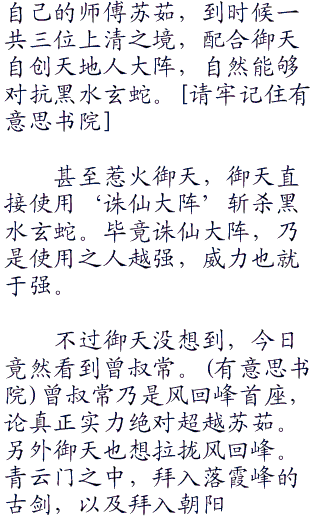 自己的师傅苏茹，到时候一
共三位上清之境，配合御天
自创天地人大阵，自然能够
对抗黑水玄蛇。[请牢记住有
意思书院]
甚至惹火御天，御天直
接使用‘诛仙大阵’斩杀黑
水玄蛇。毕竟诛仙大阵，乃
是使用之人越强，威力也就
于强。
不过御天没想到，今日
竟然看到曾叔常。(有意思书
院)曾叔常乃是风回峰首座，
论真正实力绝对超越苏茹。
另外御天也想拉拢风回峰。
青云门之中，拜入落霞峰的
古剑，以及拜入朝阳